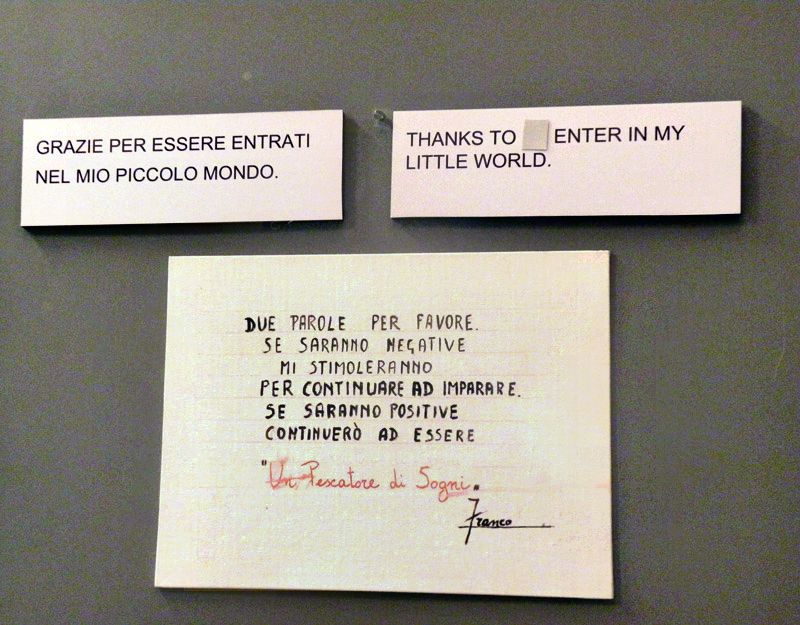 GRAZIE PER ESSERE ENTRATI
NEL MIO PICCOLO MONDO.
THANKS TO ENTER IN MY
LITTLE WORLD.
DUE PAROLE PER FAVORE.
SE SARANNO NEGATIVE
MI STIMOLERANNO
PER CONTINUARE AD IMPARARE.
SE SARANNO POSITIVE
CONTINUERÒ AD ESSERE
"Un Pescatore di Sogni".
Franco